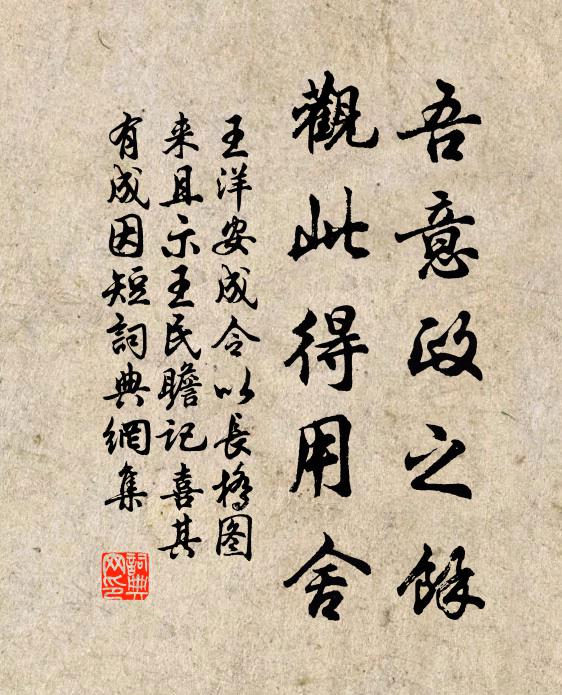 吾意政之餘
觀此得用舍
王洋安成令以長橋图
来且示王民瞻记喜其
有成因短詞典網集
詞典
网印